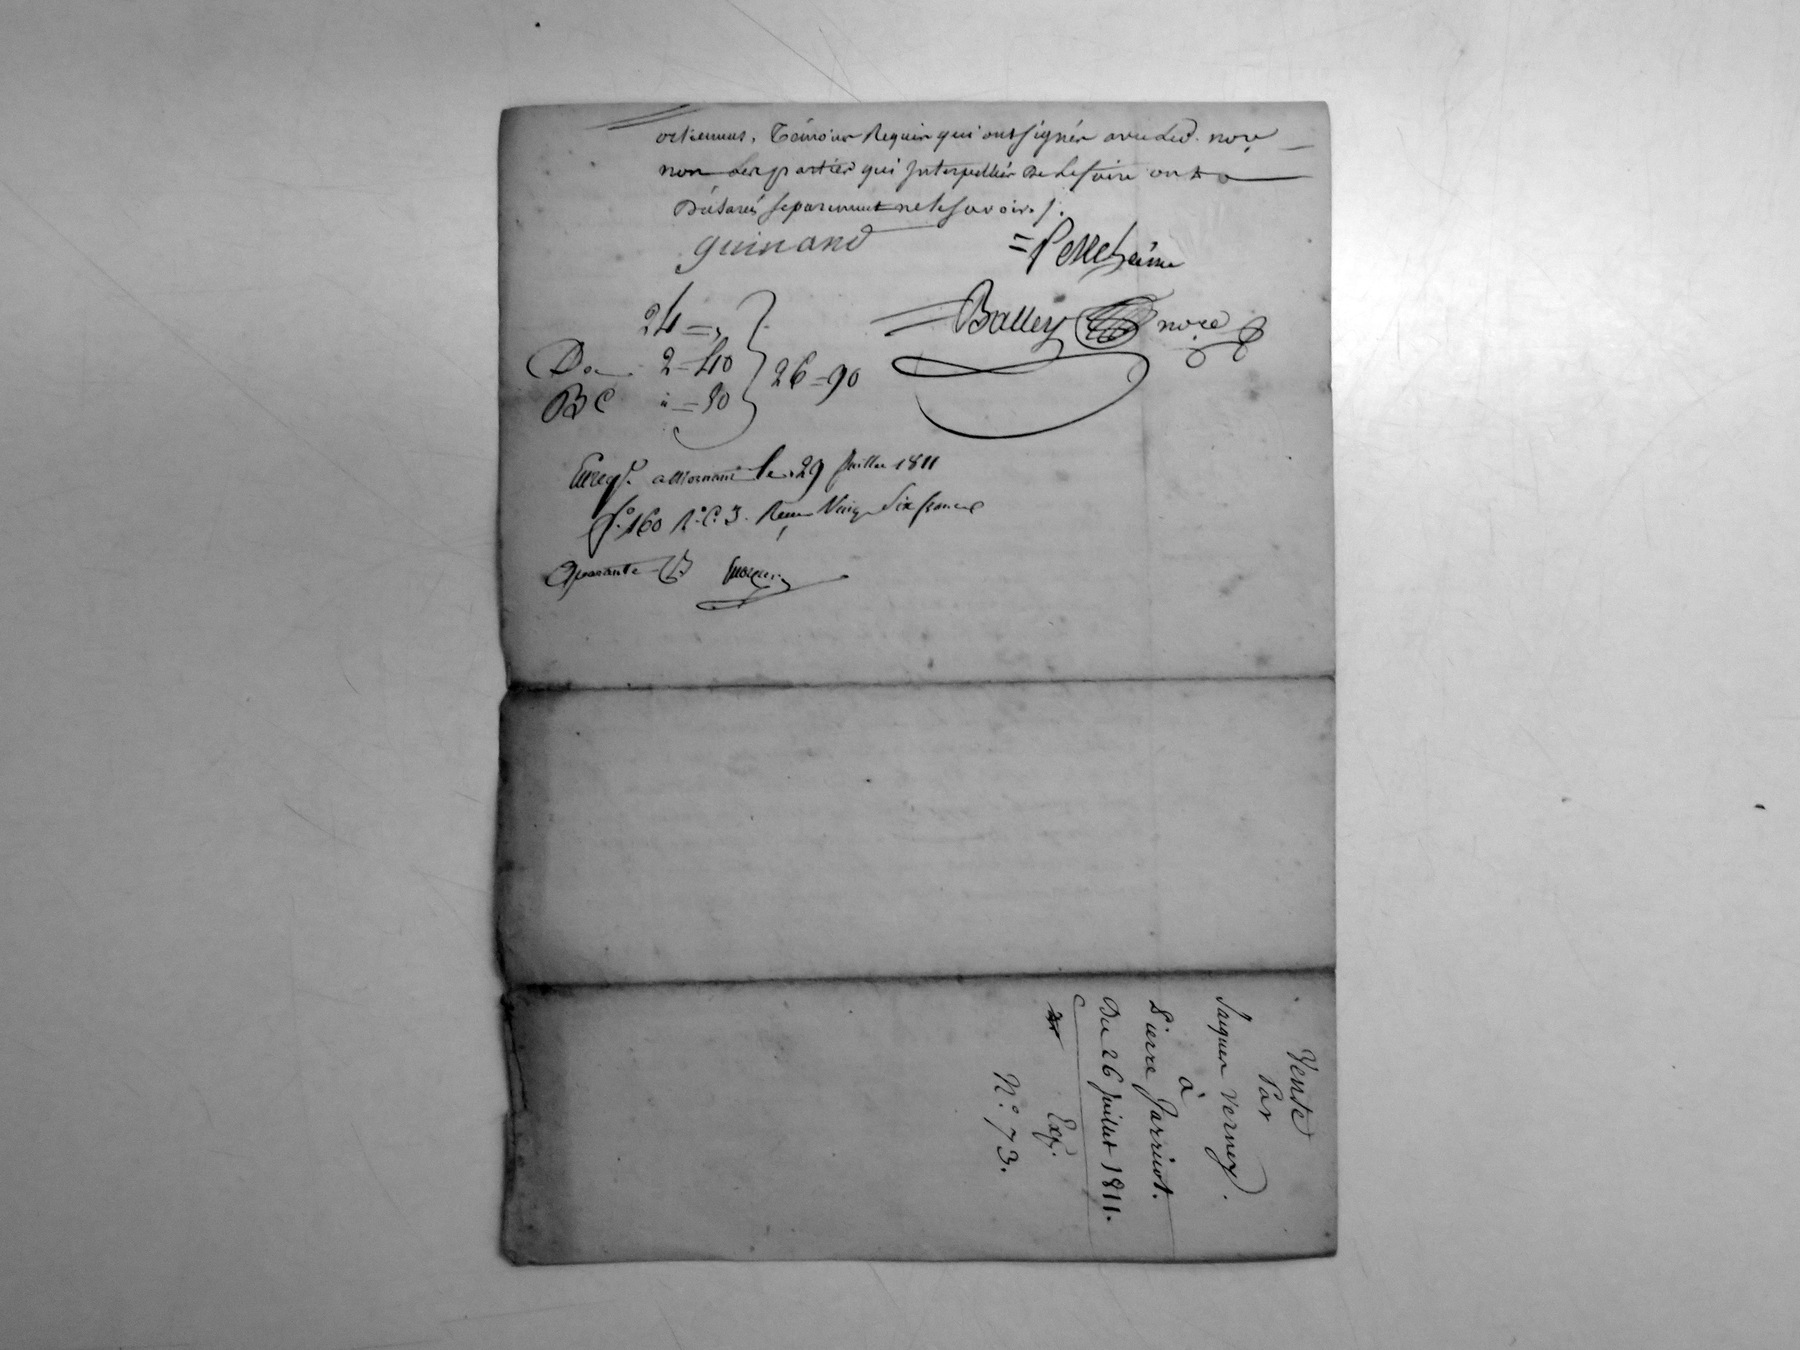 Témoins Requis qui ont signés avec led. nore
non les parties qui Interpellées De le faire ont
Déclarés séparément ne le savoir ./.
guinand
Balley nore
24 =
2 = 40
BC " = 50
26 = 90
Enregt. a Mornant le 29 juillet 1811
fo. 160 Ro. C. 3. Reçu Vingt Six francs
Vente
Par
Jaques Verney.
à
Pierre Jarricot.
Du 26 Juillet 1811.
Exp.
No. 73.